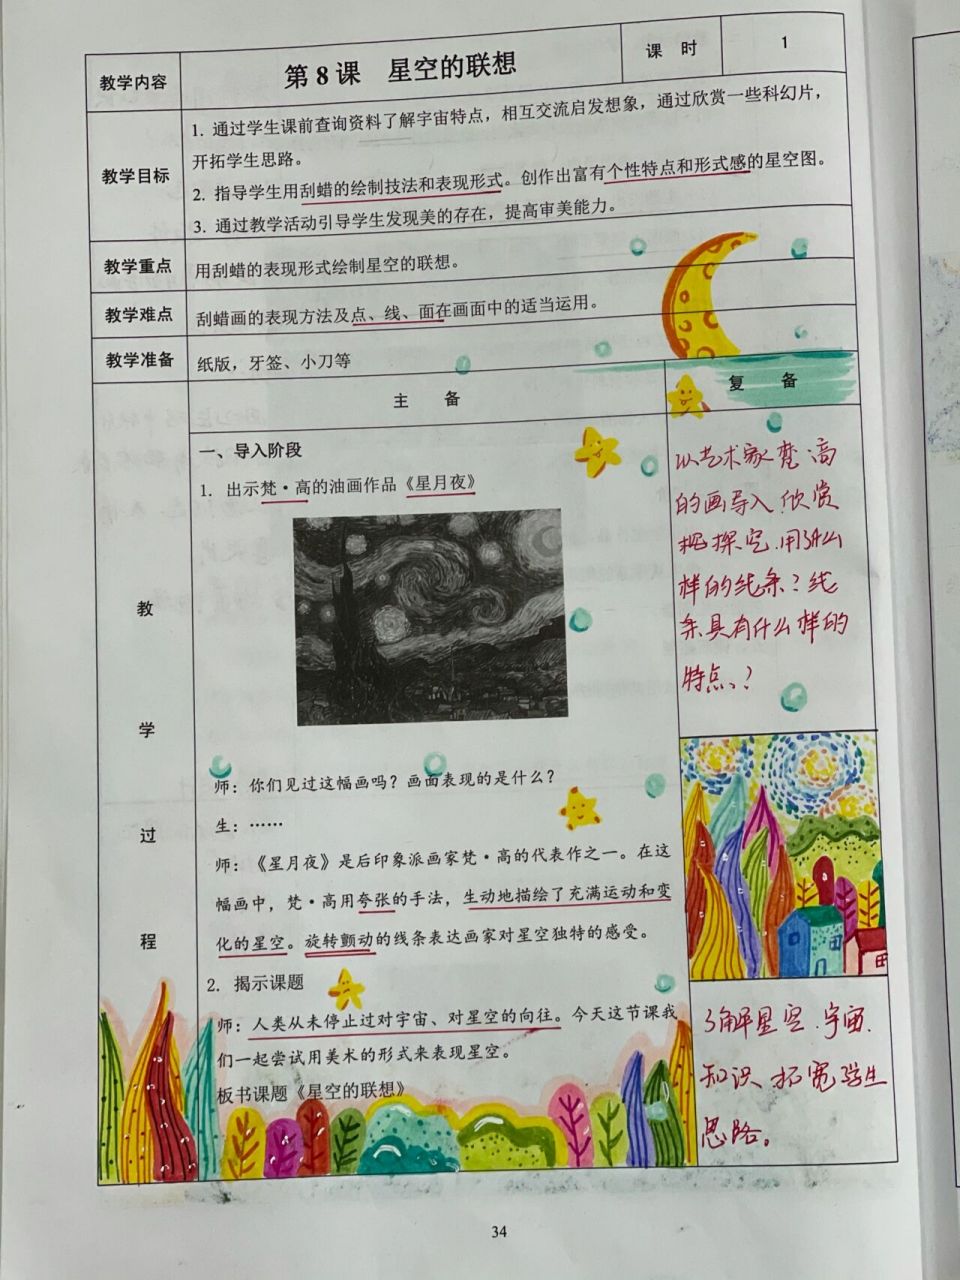 教学内容
第 8 课 星空的联想
课 时
1
教学目标
1. 通过学生课前查询资料了解宇宙特点，相互交流启发想象，通过欣赏一些科幻片，
开拓学生思路。
2. 指导学生用刮蜡的绘制技法和表现形式。创作出富有个性特点和形式感的星空图。
3. 通过教学活动引导学生发现美的存在，提高审美能力。
教学重点
用刮蜡的表现形式绘制星空的联想。
教学难点
刮蜡画的表现方法及点、线、面在画面中的适当运用。
教学准备
纸版，牙签、小刀等
教学过程
主 备
一、导入阶段
1. 出示梵·高的油画作品《星月夜》
师：你们见过这幅画吗？画面表现的是什么？
生：……
师：《星月夜》是后印象派画家梵·高的代表作之一。在这
幅画中，梵·高用夸张的手法，生动地描绘了充满运动和变
化的星空。旋转颤动的线条表达画家对星空独特的感受。
2. 揭示课题
师：人类从未停止过对宇宙、对星空的向往。今天这节课我
们一起尝试用美术的形式来表现星空。
板书课题《星空的联想》
复 备
以艺术家梵·高
的画导入，欣赏
探究，用什么
样的线条？线
条具有什么样的
特点、？
了解星空、宇宙、
知识、拓宽学生
思路。
34